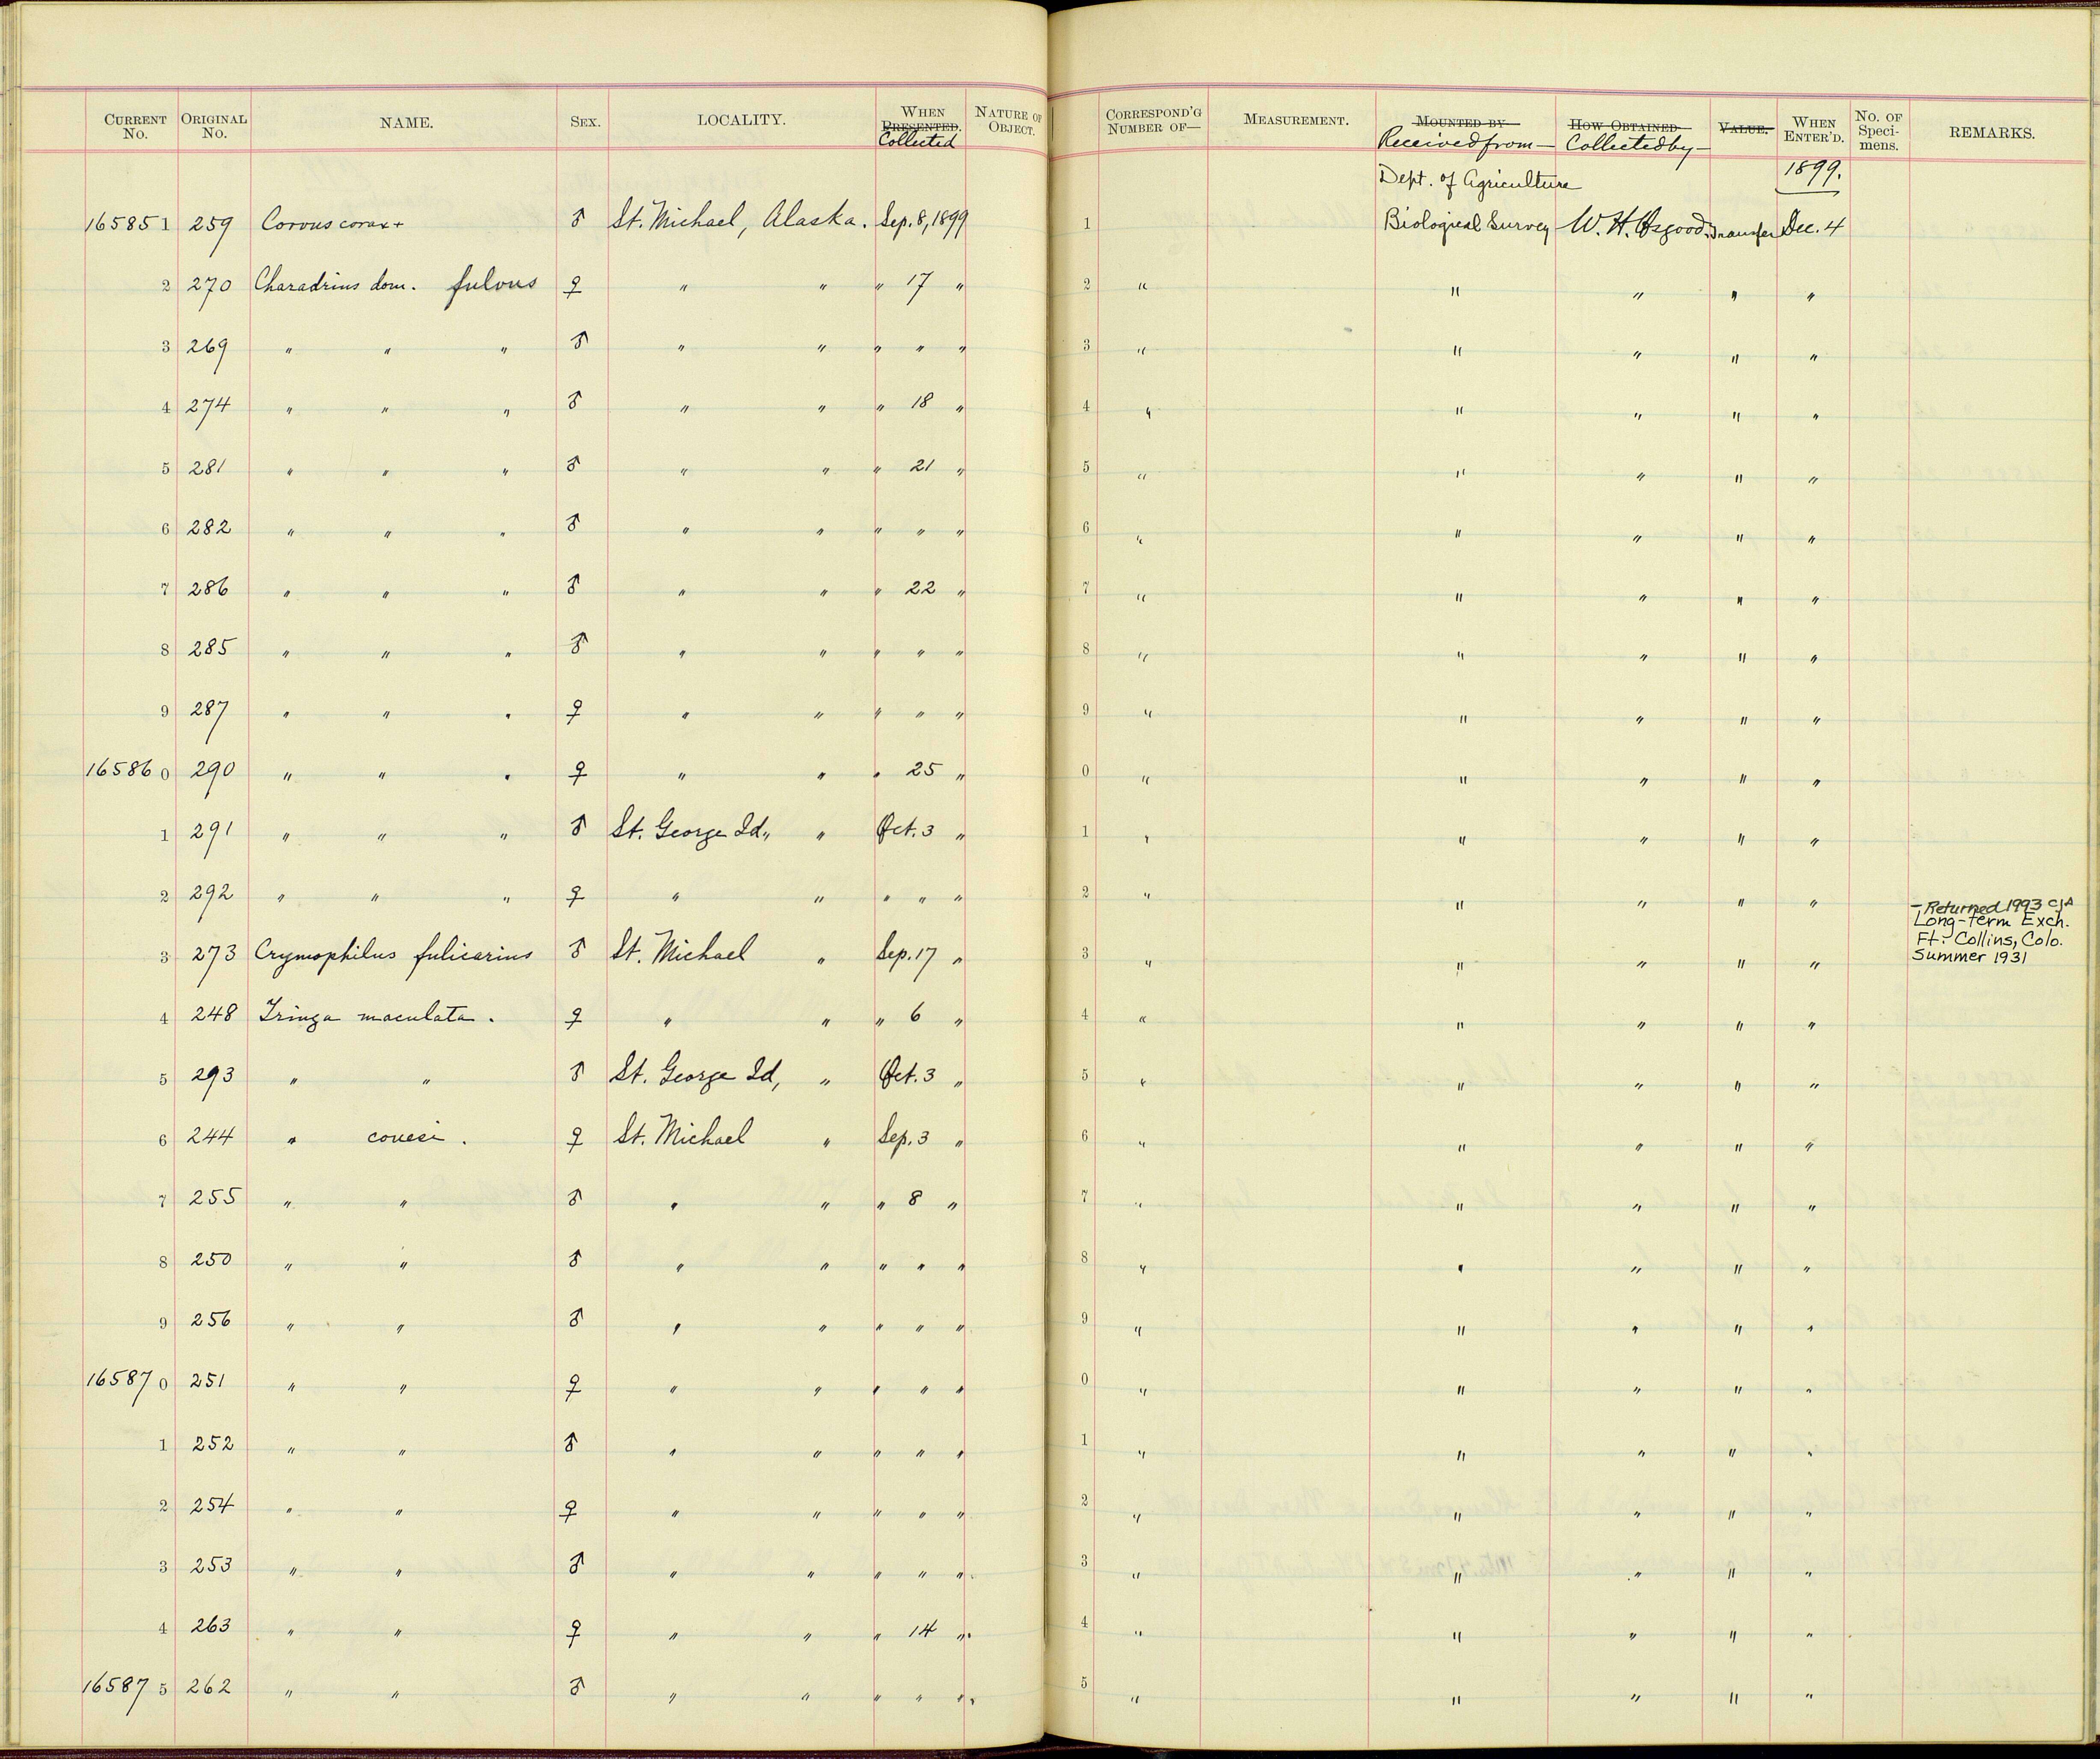 CURRENT No. ORIGINAL No. NAME. SEX. LOCALITY. WHEN PRESENTED. Collected NATURE OF OBJECT. CORRESPOND'G NUMBER OF— MEASUREMENT. MOUNTED BY Received from— HOW OBTAINED Collected by— VALUE. WHEN ENTER'D. No. OF Speci-mens. REMARKS.
Dept. of Agriculture 1899.
165851 259 Corvus corax + ♂ St. Michael, Alaska. Sep. 8, 1899 1 Biological Survey W. H. Osgood Transfer Dec. 4
2 270 Charadrius dom. fulvus ♀ " " " 17 " 2 " " " " "
3 269 " " " ♂ " " " " " 3 " " " " "
4 274 " " " ♂ " " " 18 " 4 " " " " "
5 281 " " " ♂ " " " 21 " 5 " " " " "
6 282 " " " ♂ " " " " " 6 " " " " "
7 286 " " " ♂ " " " 22 " 7 " " " " "
8 285 " " " ♂ " " " " " 8 " " " " "
9 287 " " " ♀ " " " " " 9 " " " " "
165860 290 " " " ♀ " " " 25 " 0 " " " " "
1 291 " " " ♂ St. George Id., " Oct. 3 " 1 " " " " "
2 292 " " " ♀ " " " " " 2 " " " " "
3 273 Crymophilus fulicarius ♂ St. Michael " Sep. 17 " 3 " " " " " – Returned 1993 CJA
Long-term Exch.
Ft. Collins, Colo.
Summer 1931
4 248 Tringa maculata. ♀ " " " 6 " 4 " " " " "
5 293 " " ♂ St. George Id, " Oct. 3 " 5 " " " " "
6 244 " couesi. ♀ St. Michael " Sep. 3 " 6 " " " " "
7 255 " " ♂ " " " 8 " 7 " " " " "
8 250 " " ♂ " " " " " 8 " " " " "
9 256 " " ♂ " " " " " 9 " " " " "
165870 251 " " ♀ " " " " " 0 " " " " "
1 252 " " ♂ " " " " " 1 " " " " "
2 254 " " ♀ " " " " " 2 " " " " "
3 253 " " ♂ " " " " " 3 " " " " "
4 263 " " ♀ " " " 14 " 4 " " " " "
165875 262 " " ♂ " " " " " 5 " " " " "